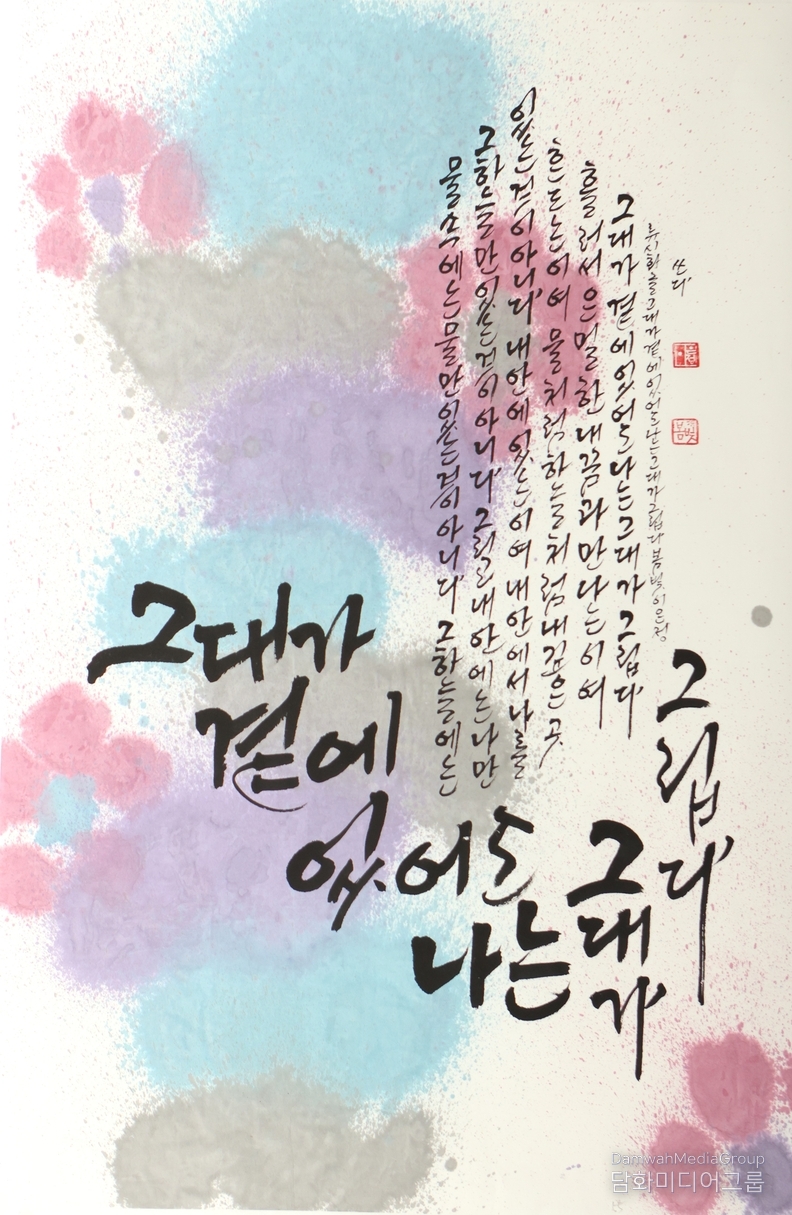 그대가
곁에
있어도
나는
그대가
그립다
물속에는물만있는것이아니다 그하늘에는
그하늘만있는것이아니다 그리고내안에는나만
있는것이아니다 내안에있는이여 내안에서나를
흔드는이여 물처럼하늘처럼내깊은곳
흘러서은밀한내꿈과만나는이여
그대가곁에있어도나는그대가그립다
류시화글그대가곁에있어도나는그대가그립다봄빛이은정
쓰다
DamwhaMediaGroup
담화미디어그룹